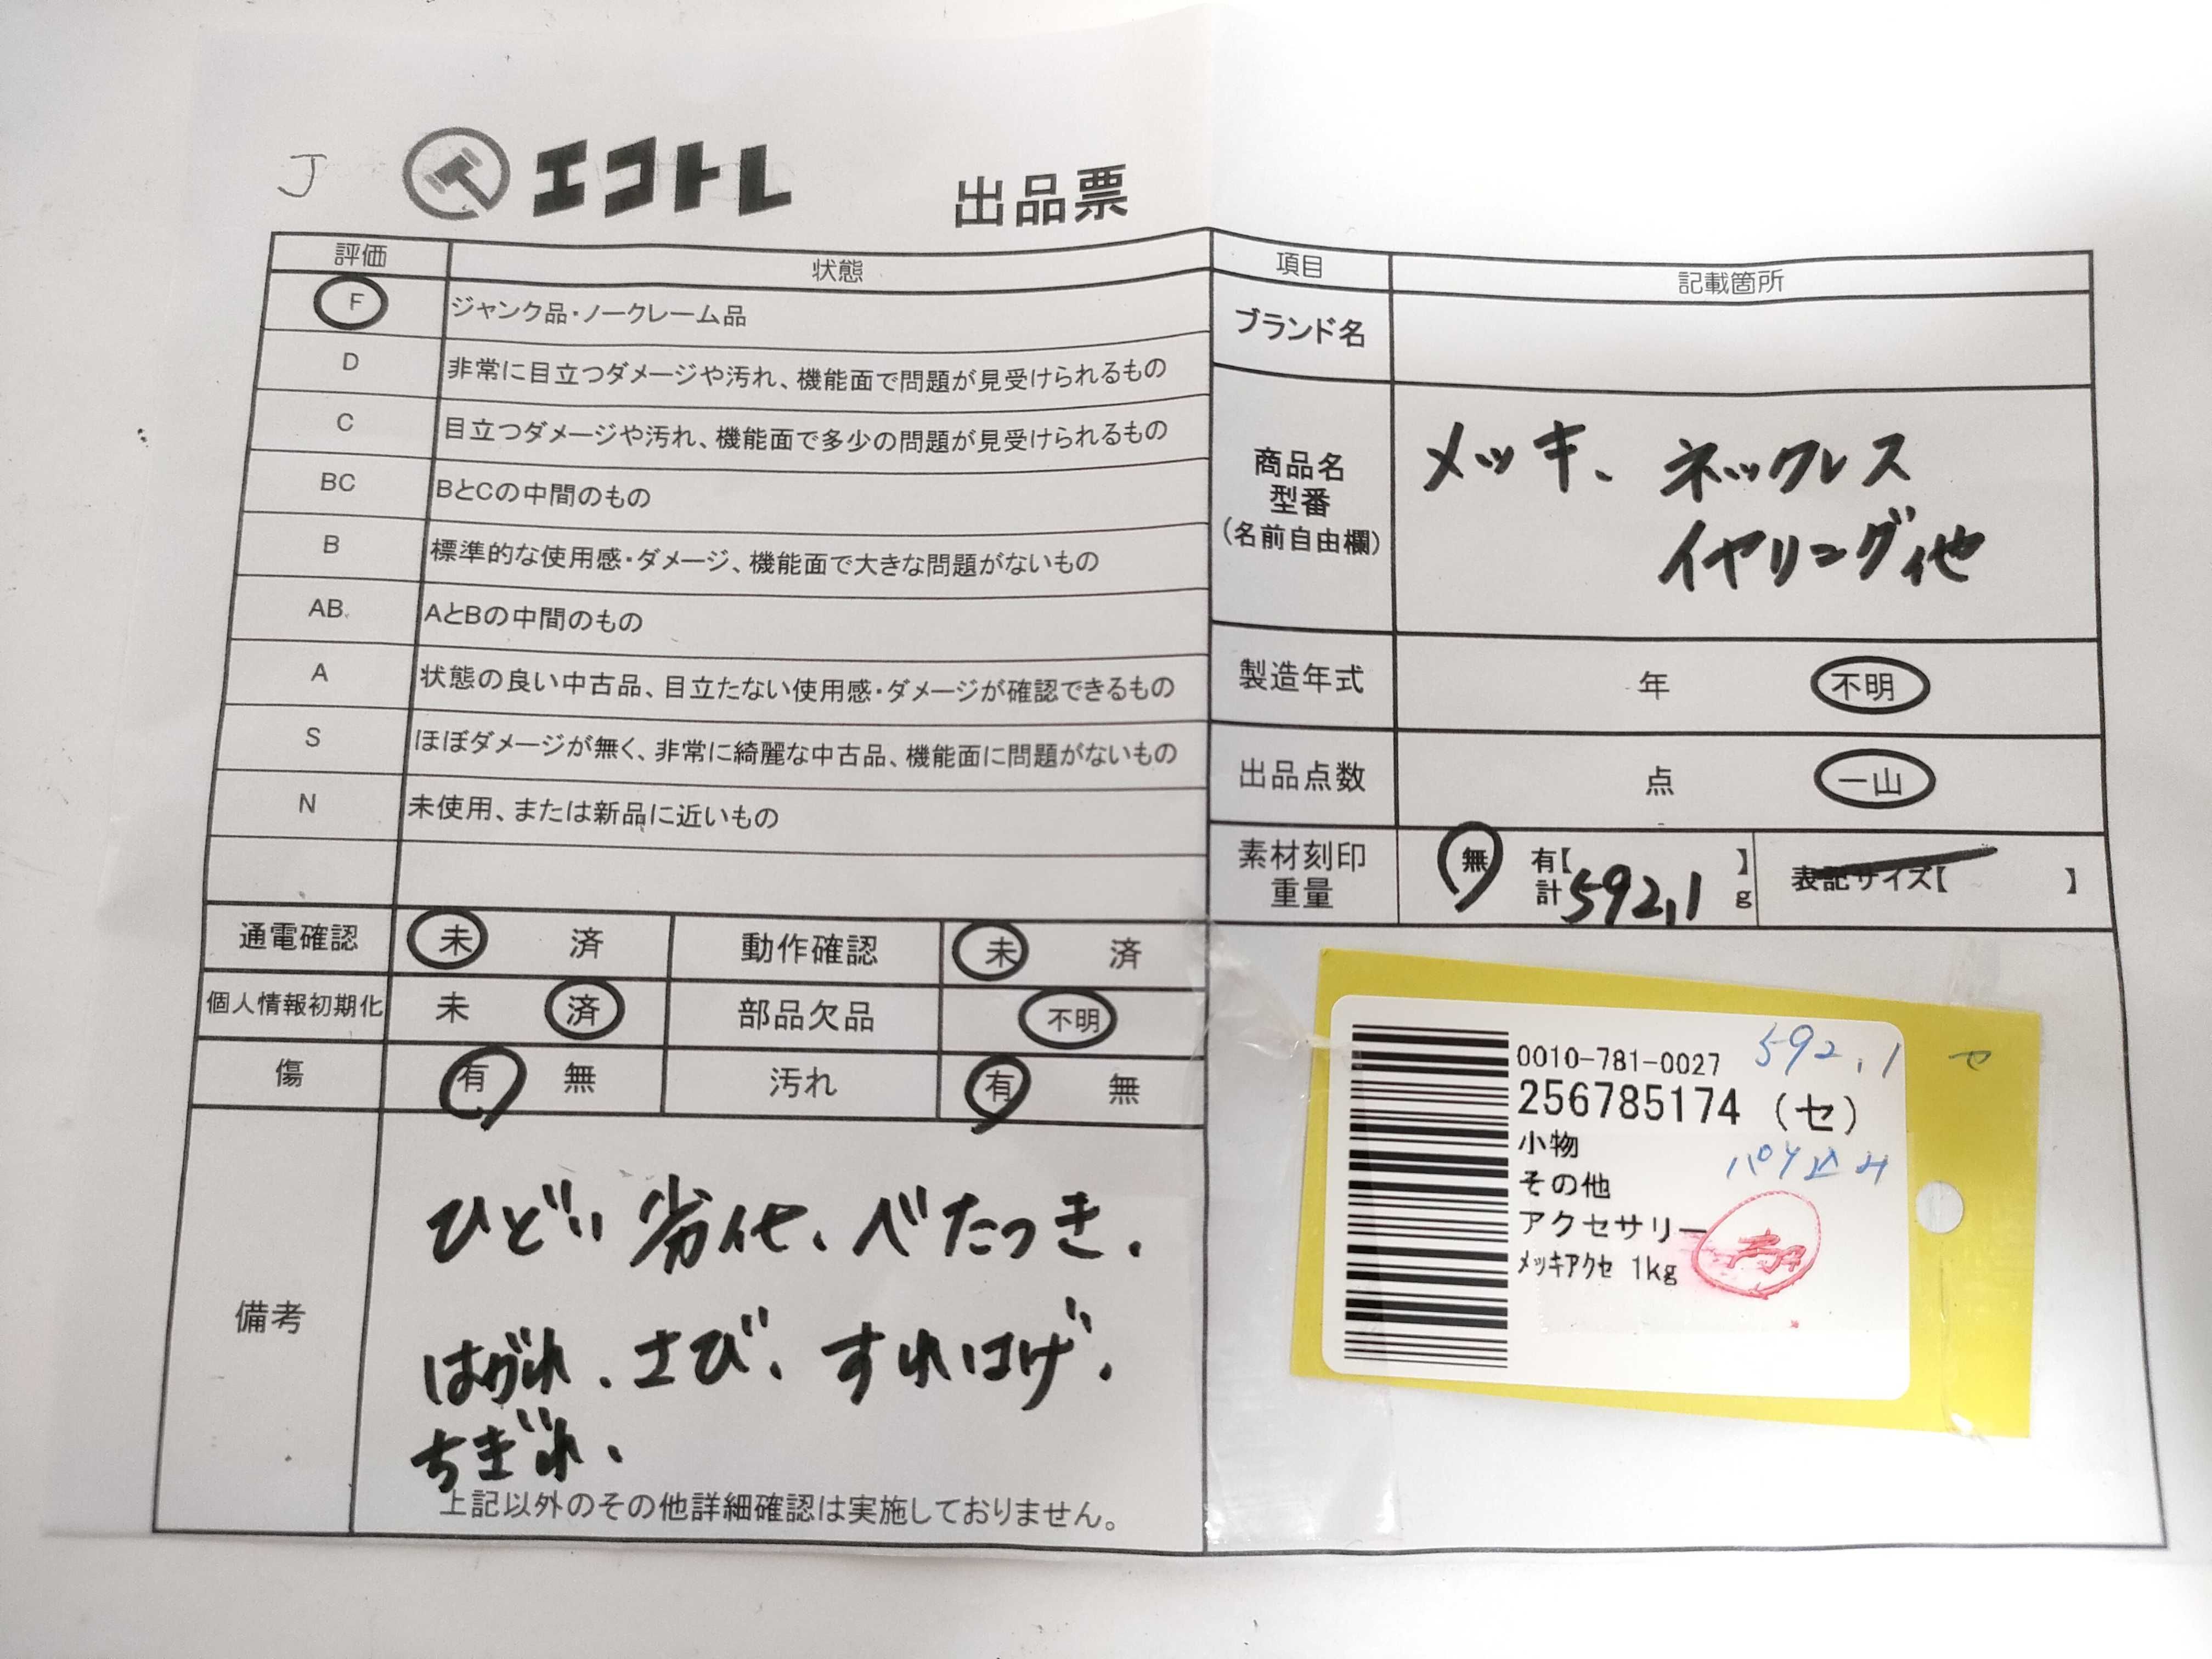 J
エコトレ 出品票
評価 状態
F ジャンク品・ノークレーム品
D 非常に目立つダメージや汚れ、機能面で問題が見受けられるもの
C 目立つダメージや汚れ、機能面で多少の問題が見受けられるもの
BC BとCの中間のもの
B 標準的な使用感・ダメージ、機能面で大きな問題がないもの
AB AとBの中間のもの
A 状態の良い中古品、目立たない使用感・ダメージが確認できるもの
S ほぼダメージが無く、非常に綺麗な中古品、機能面に問題がないもの
N 未使用、または新品に近いもの
通電確認 未 済 動作確認 未 済
個人情報初期化 未 済 部品欠品 不明
傷 有 無 汚れ 有 無
備考
ひどい 劣化、べたつき、
はがれ、さび、すれはげ、
ちぎれ、
上記以外のその他詳細確認は実施しておりません。
項目 記載箇所
ブランド名
商品名
型番
(名前自由欄)
メッキ、ネックレス
イヤリング他
製造年式 年 不明
出品点数 点 一山
素材刻印
重量
無 有【 】
計 592.1 g
表記サイズ【 】
592.1 セ
0010-781-0027
256785174 (セ)
小物
パケ込み
その他
アクセサリー
メッキアクセ 1kg